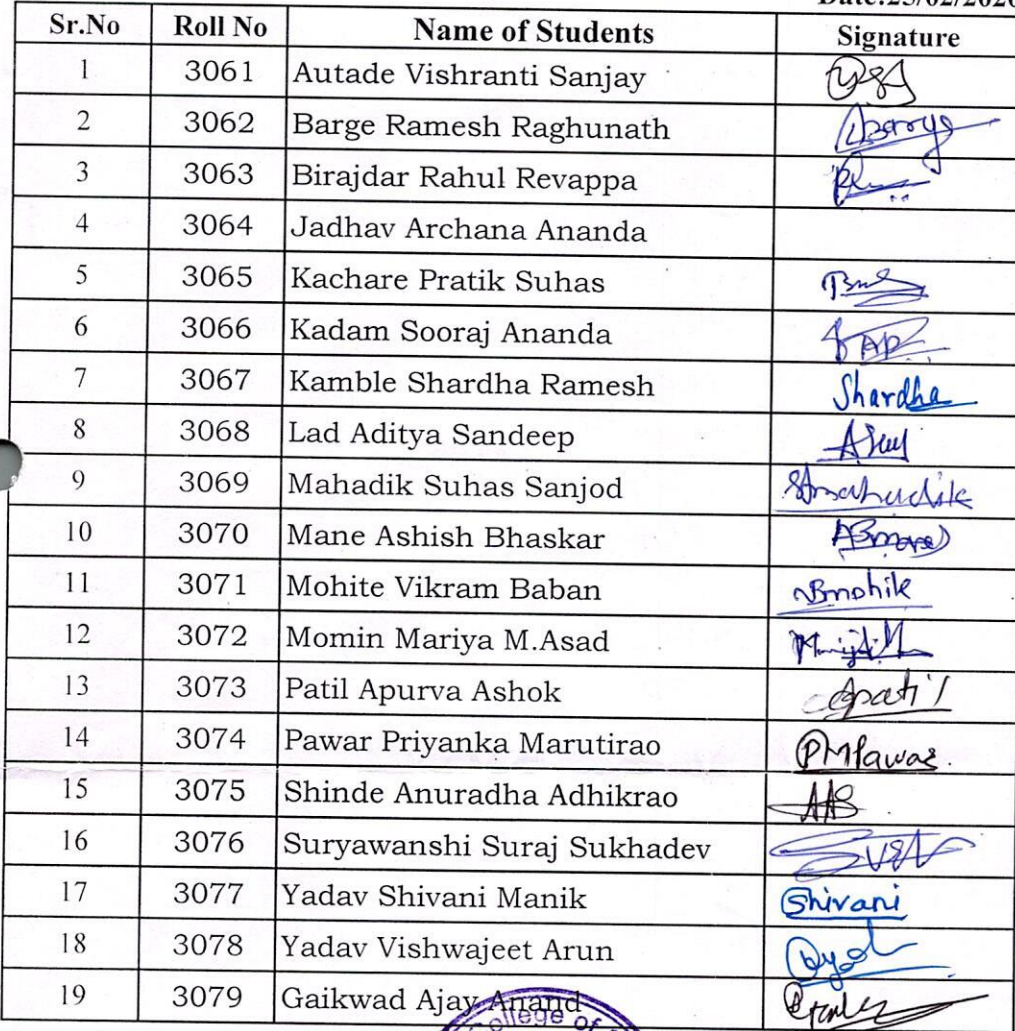 Date:25/02/2020
Sr.No Roll No Name of Students Signature
1 3061 Autade Vishranti Sanjay
2 3062 Barge Ramesh Raghunath
3 3063 Birajdar Rahul Revappa
4 3064 Jadhav Archana Ananda
5 3065 Kachare Pratik Suhas
6 3066 Kadam Sooraj Ananda
7 3067 Kamble Shardha Ramesh Shardha
8 3068 Lad Aditya Sandeep
9 3069 Mahadik Suhas Sanjod
10 3070 Mane Ashish Bhaskar
11 3071 Mohite Vikram Baban
12 3072 Momin Mariya M.Asad
13 3073 Patil Apurva Ashok Apatil
14 3074 Pawar Priyanka Marutirao PMPawar.
15 3075 Shinde Anuradha Adhikrao AAS
16 3076 Suryawanshi Suraj Sukhadev
17 3077 Yadav Shivani Manik Shivani
18 3078 Yadav Vishwajeet Arun
19 3079 Gaikwad Ajay Anand
College of